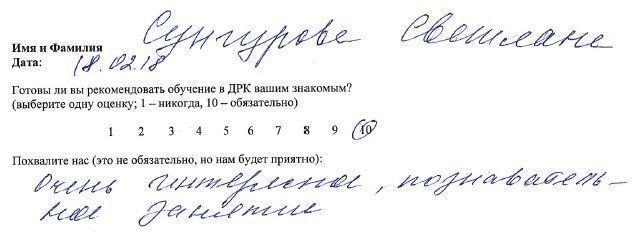 Имя и Фамилия Сунгурова Светлана
Дата: 18.02.18
Готовы ли вы рекомендовать обучение в ДРК вашим знакомым?
(выберите одну оценку; 1 – никогда, 10 – обязательно)
1 2 3 4 5 6 7 8 9 10
Похвалите нас (это не обязательно, но нам будет приятно):
очень интересное, познаватель-
ное занятие